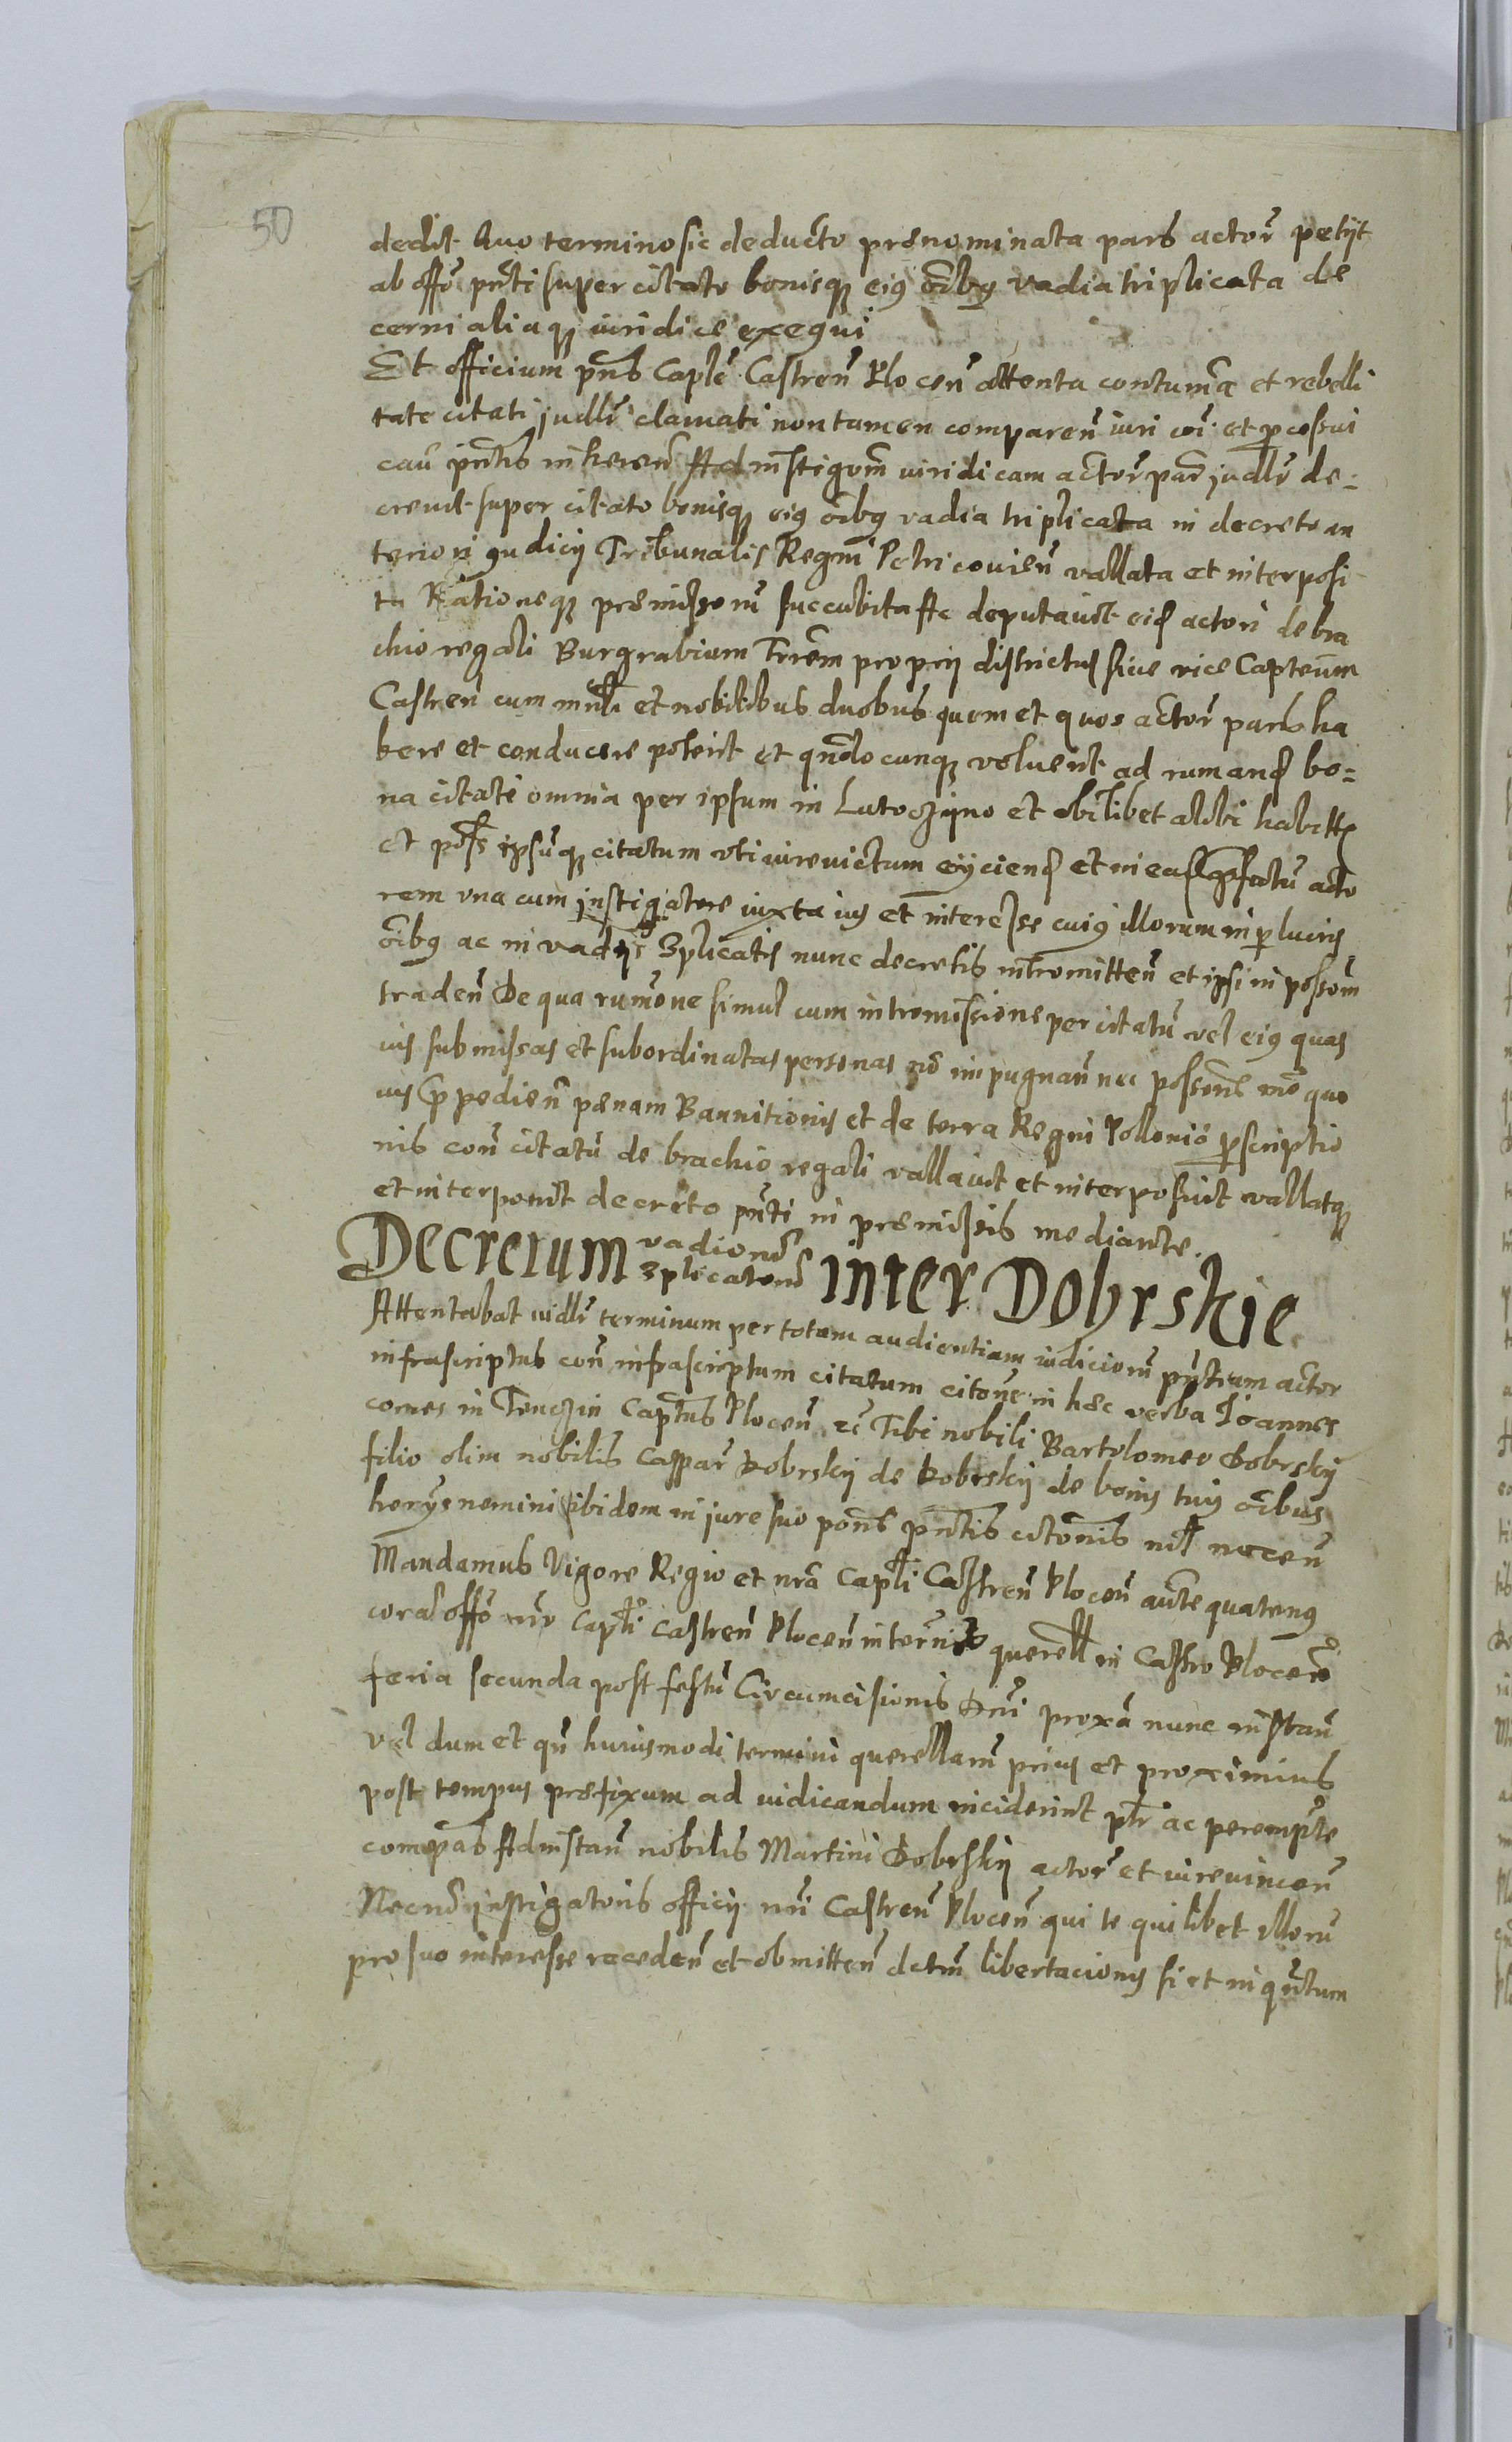 50
dedit Quo termino sic deducto prænominata pars actor̃ petÿt
ab offõ pñti super citato bonisqꝫ eiꝰ oĩbꝰ vadia triplicata de
cerni aliaqꝫ iuridice exequi
Et officium pñs Caplẽ Castreñ Ploceñ attenta contumã et rebelli
tate citati judlr̃ clamati non tamen compareñ iuri cõi et pcessui
cañ pñtis inhereñ Ad instigoñm iuridicam actor̃ par̃ judlr̃ de=
crevit super citato bonisqꝫ eiꝰ oĩbꝰ vadia triplicata in decreto an
teriori Judicij Tribunalis Regni Petricovieñ vallata et interposi
ta Rationeqꝫ præmissorũ succubita Ac deputavit eid actori de bra
chio regali Burgrabium Trrẽm proprij districtus sive vice Capteũm
Castreñ cum mrãli et nobilibus duobus quem et quos actor̃ pars ha
bere et conducere poterit et qñdocunqꝫ voluerit ad rumand bo=
na citati omnia per ipsum in Lutoczÿno et vbilibet alibi habitt
et posś ipsũqꝫ citatum vti iurevictum eijciend et in eas actũ acto
rem vna cum jnstigatore iuxta ius et interesse cuiꝰ illorum in plucris
oĩbꝰ ac in vadÿs 3plicatis nunc decretis intromitteñ et ipsi in possoñm
tradeñ De qua rumõne simul cum intromissione per citatũ vel eiꝰ quas
vis submissas et subordinatas personas nõ impugnañ nec possoñs mõ quo
vis præpedieñ pœnam Bannitionis et de terra Regni Polloniæ pscriptio
nis coñ citatũ de brachio regali vallavit et interposuit vallatqꝫ
et interponit decreto pñti in præmissis mediante.
Decretum vadiorũ 3plicatorũ inter Dobrskie
Attentabat iudlr̃ terminum per totam audientiam iudiciorũ pñtium actor
infrascriptus coñ infrascriptum citatum citoñe in hæc verba Ioannes
comes in Tenczin Captñs Ploceñ ꝛc̃ Tibi nobili Bartolomeo Dobrskÿ
filio olim nobilis Caspar̃ Dobrskÿ de Dobrskÿ de bonis tuis oĩbus
herÿs nemini ibidem in jure suo poñs pñtis citoñis nil noceñ
Mandamus Vigore Regio et nrã Caplĩ Castreñ Ploceñ auñte quatenꝰ
corã offõ nrõ Caplĩ Castreñ Ploceñ in termis querell in Castro Ploceñ
feria secunda post festũ Circumcisionis Dñi proxã nunc instañ
vel dum et qñ huiusmodi termini querellarũ prius et proximius
post tempus præfixum ad iudicandum inciderint ptr̃ ac perempte
compãs Ad instañ nobilis Martini Dobrskÿ actor̃ et iurevinceñ
Necnõ jnstigatoris officij nrĩ Castreñ Ploceñ qui te quilibet illorũ
pro suo interesse recedeñ et obmitteñ dctm̃ libertacionis si et in qñtum